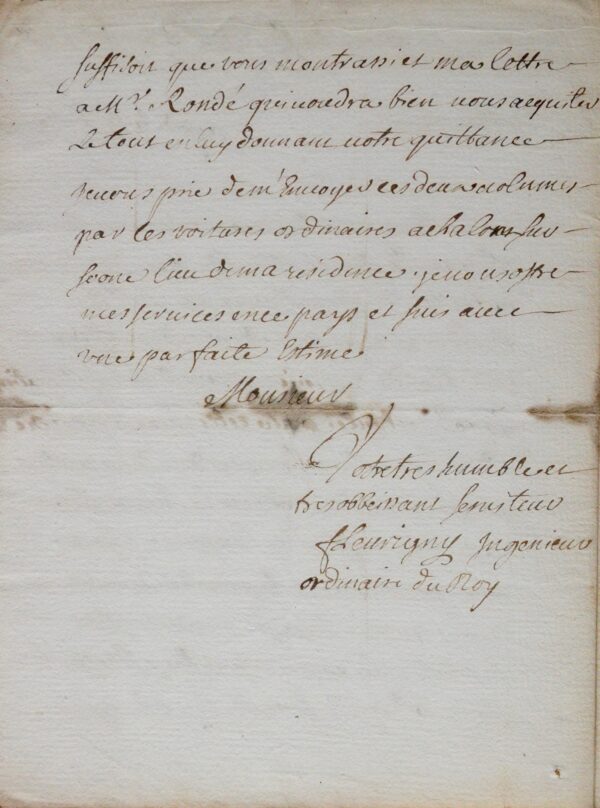 suffison que vous montrassiet ma lettre
a Mr. Londé qui voudra bien vous aequiter
Le tout en luy donnant votre quittance
je vous prie de m'Envoyer ces deux volumes
par les voitures ordinaires a chalons sur
saone lieu de ma residence. je vous offre
mes services en ce pays et suis avec
une parfaite Estime
Monsieur
Votre tres humble et
tres obbeissant serviteur
fleurigny Ingenieur
ordinaire du Roy